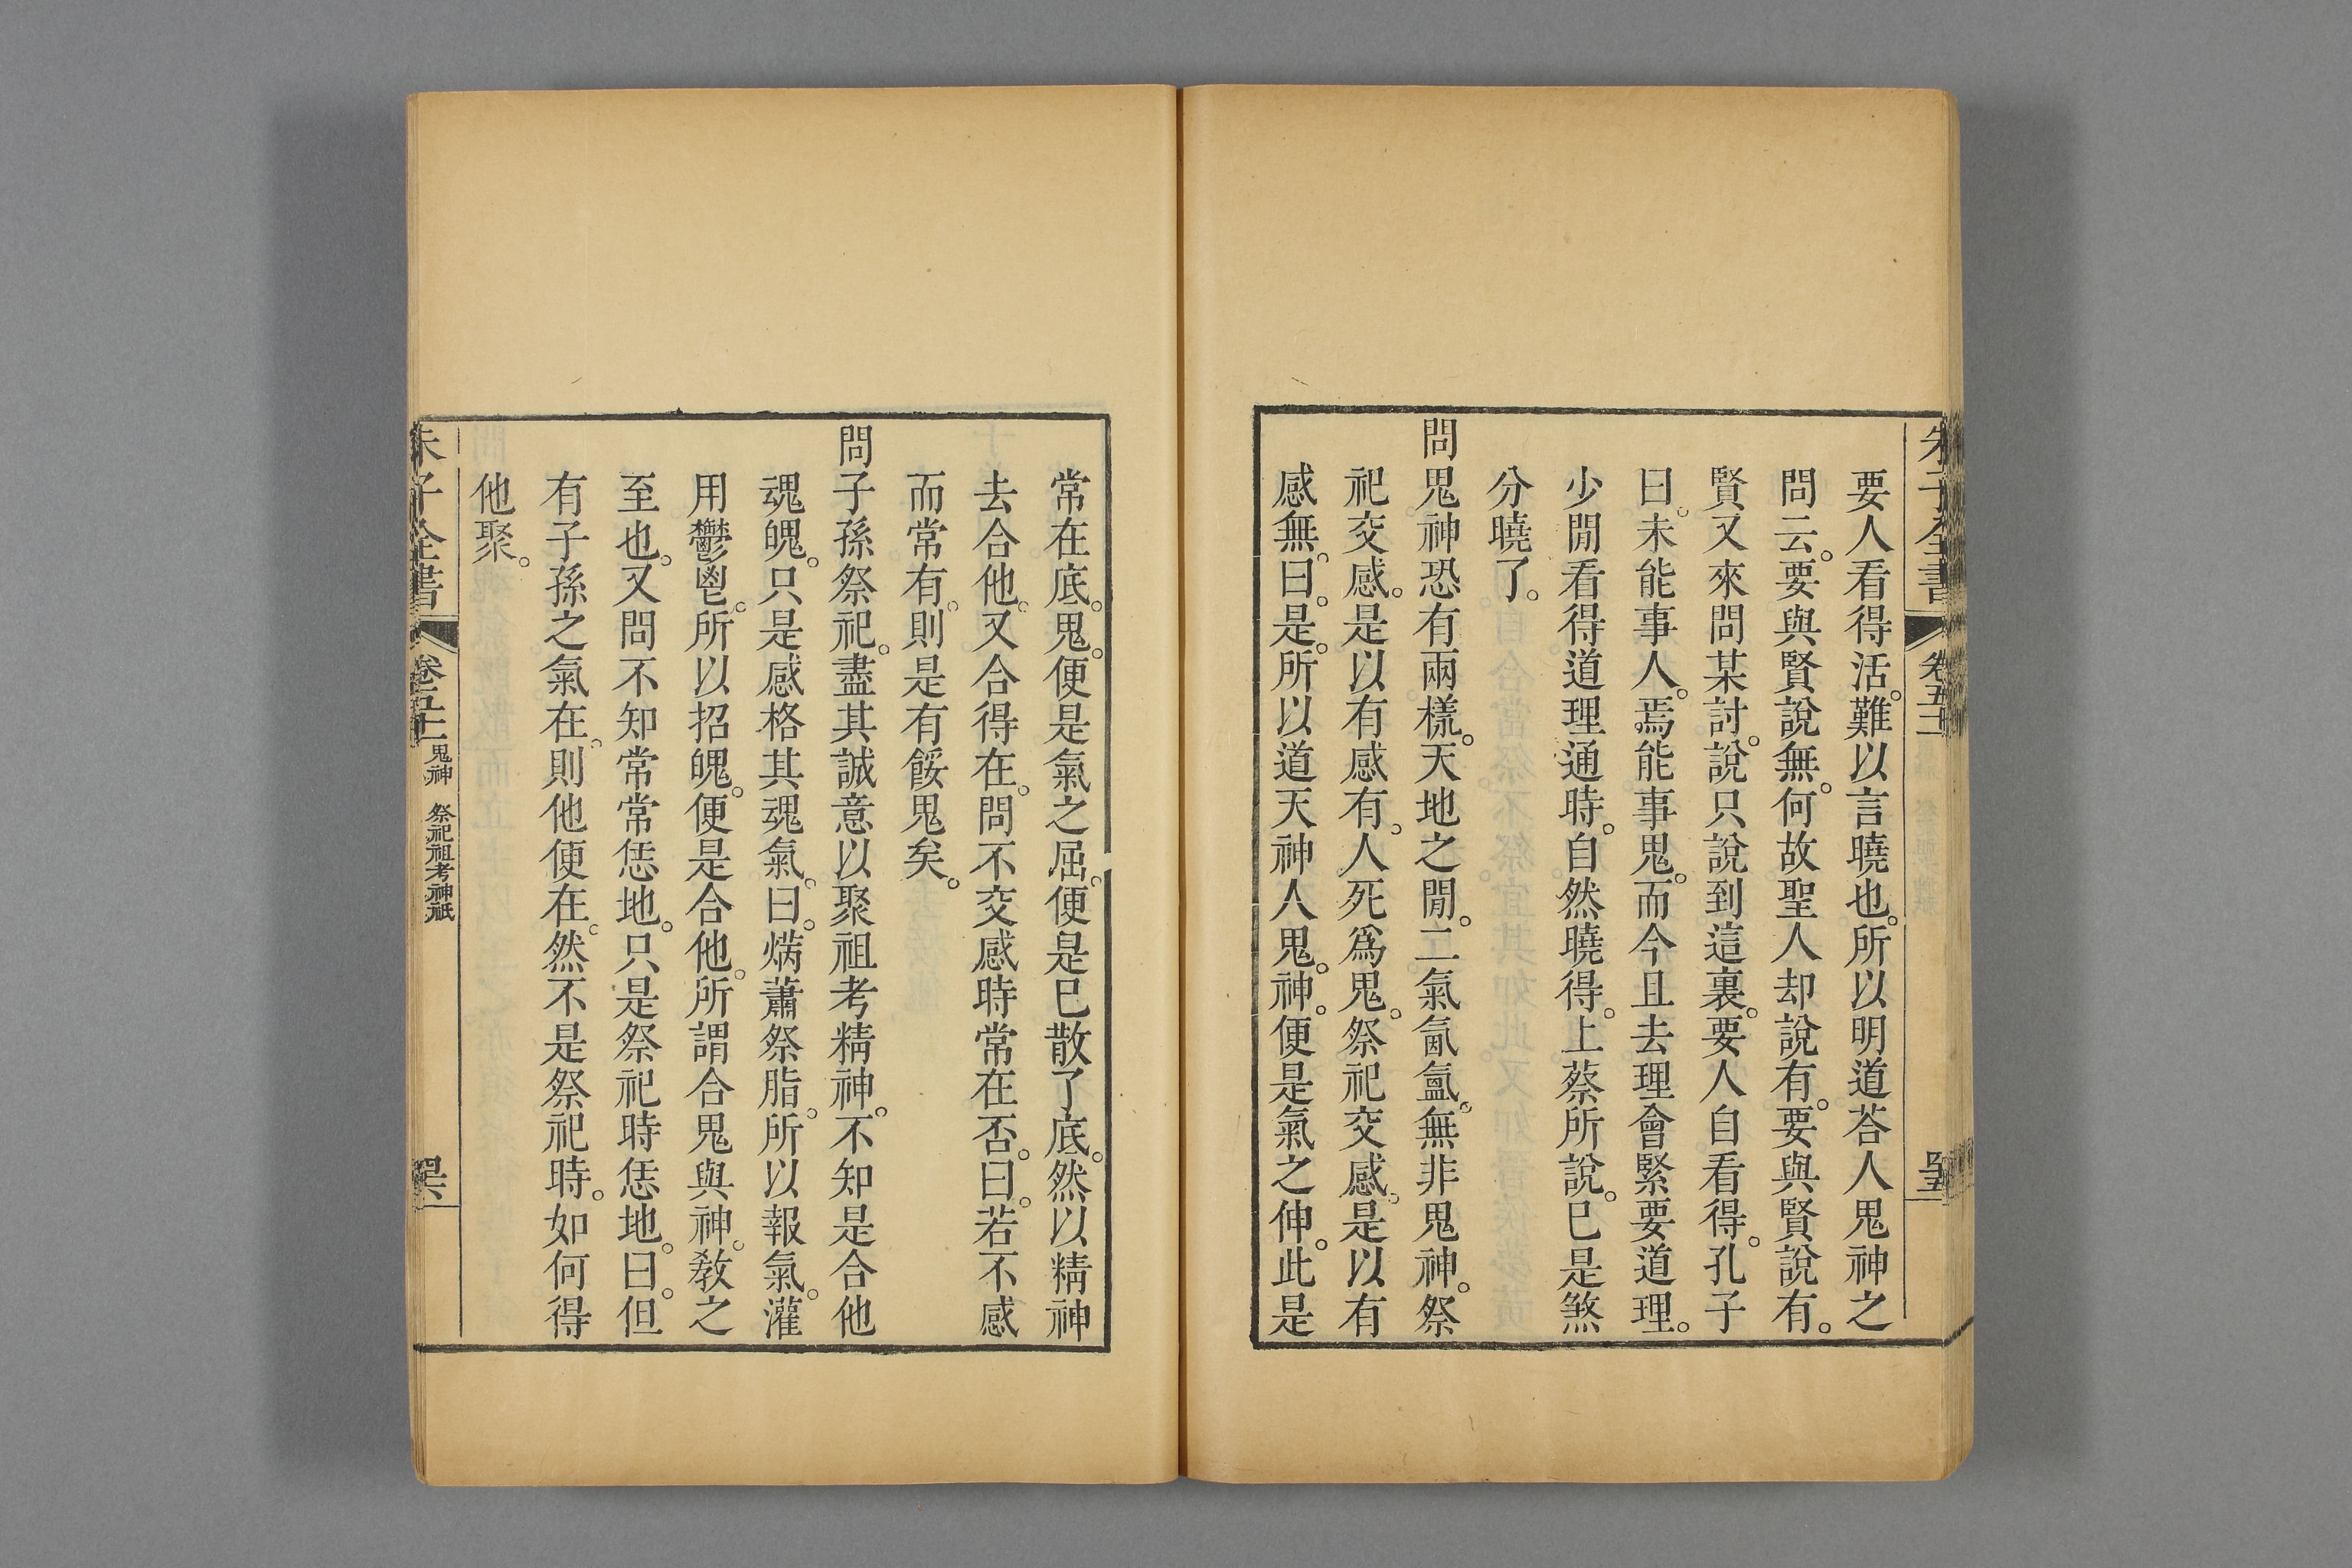 要人看得活。難以言曉也。所以明道荅人鬼神之
問云。要與賢說無。何故聖人却說有。要與賢說有。
賢又來問某討。說只說到這裏。要人自看得。孔子
曰。未能事人。焉能事鬼。而今且去理會緊要道理。
少閒看得道理通時。自然曉得。上蔡所說。已是煞
分曉了。
問鬼神恐有兩樣。天地之閒。二氣氤氳。無非鬼神。祭
祀交感。是以有感有。人死爲鬼。祭祀交感。是以有
感無。曰。是。所以道天神人鬼。神。便是氣之伸。此是
常在底。鬼。便是氣之屈。便是已散了底。然以精神
去合他。又合得在。問不交感時常在否。曰。若不感
而常有。則是有餒鬼矣。
問子孫祭祀。盡其誠意以聚祖考精神。不知是合他
魂魄。只是感格其魂氣。曰。焫蕭祭脂。所以報氣。灌
用鬱鬯。所以招魄。便是合他。所謂合鬼與神。敎之
至也。又問不知常常恁地。只是祭祀時恁地。曰。但
有子孫之氣在。則他便在。然不是祭祀時。如何得
他聚。
朱子全書
卷五十一
鬼神 祭祀祖考神祇